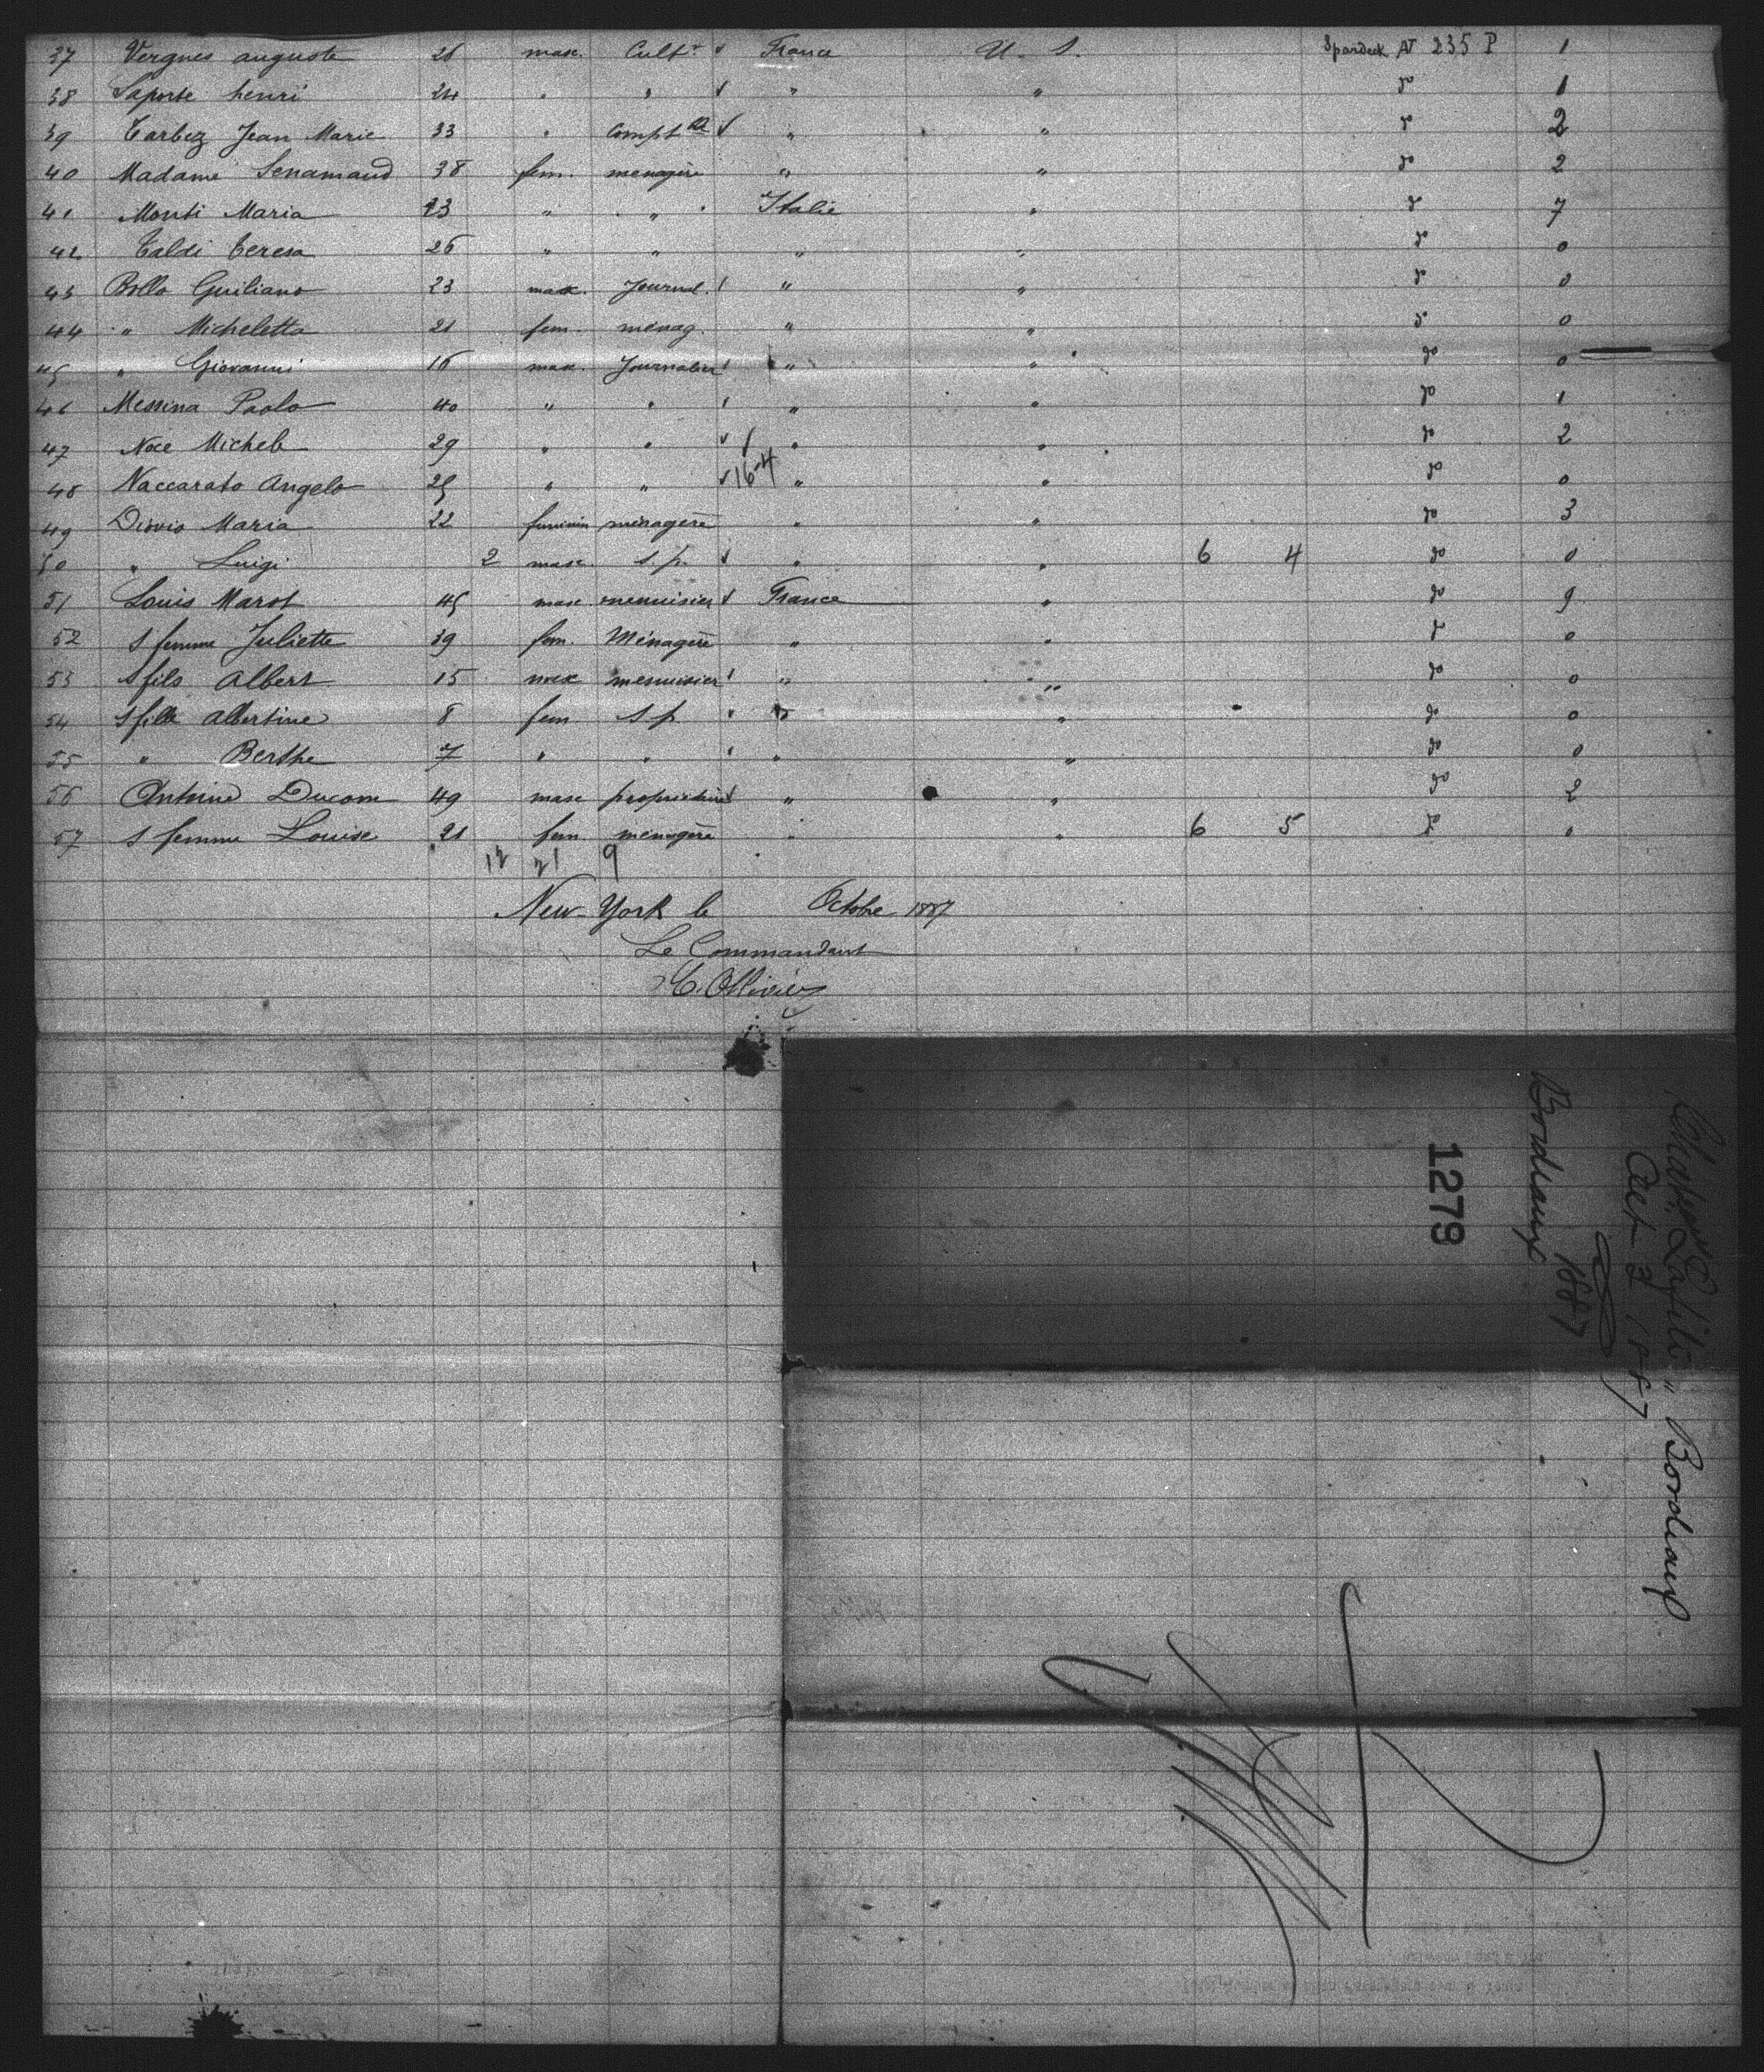 37 Vergnes auguste 26 masc. Cultr ✓ France U. S. Spardeck AT 235 P 1
38 Laporte henri 24 " " ✓ " " do 1
39 Tarbez Jean Marie 33 " Comptble ✓ " " do 2
40 Madame Senamaud 38 fem. menagère " " do 2
41 Monti Maria 23 " " Italie " do 7
42 Taldi Teresa 26 " " " " do 0
43 Bollo Guiliano 23 masc. Journal. ✓ " " do 0
44 " Micheletta 21 fem. ménag. " " do 0
45 " Giovanni 16 masc. Journalier ✓ " " do 0
46 Messina Paolo 40 " " ✓ " " do 1
47 Noce Michele 29 " " ✓ ✓ " " do 2
48 Naccarato Angelo 25 " " ✓ 16-4 " " do 0
49 Diovio Maria 22 feminin ménagère " " do 3
50 " Luigi 2 masc. s.p. ✓ " " 6 4 do 0
51 Louis Marot 45 masc. menuisier ✓ France " do 9
52 s femme Juliette 39 fem. Ménagère " " do 0
53 s fils Albert 15 masc menuisier ✓ " " do 0
54 s fille albertine 8 fem s p. ✓ " " do 0
55 " Berthe 7 " " ✓ " " do 0
56 Antoine Ducom 49 masc propriétaire ✓ " " do 2
57 s femme Louise 21 fem menagère " " 6 5 do 0
12 21 9
New-York le Octobre 1887
Le Commandant
C. Ollivier
Chateau Lafite " Bordeaux
Oct 3 1887
1887
Bordeaux
1279